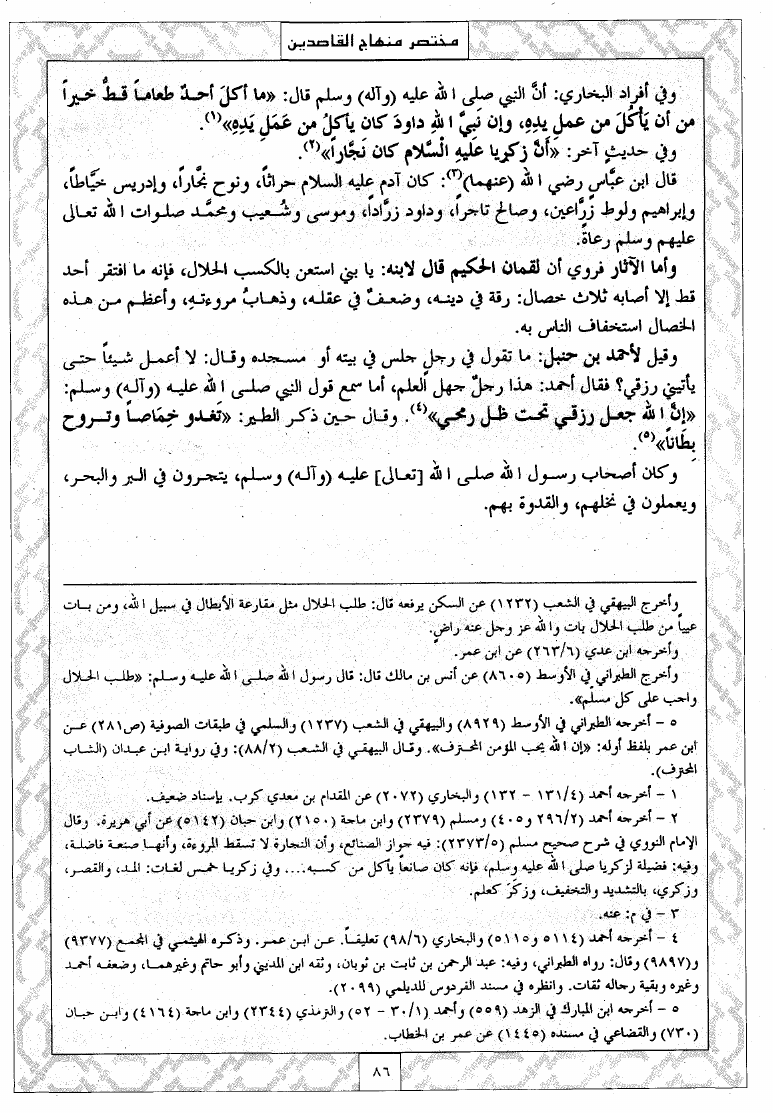 مختصر منهاج القاصدين
وفي أفراد البخاري: أنَّ النبي صلى الله عليه (وآله) وسلم قال: «ما أكلَ أحدٌ طعاماً قطُّ خيراً
من أن يَأكُلَ من عملِ يدِهِ، وإن نَبيَّ اللهِ داودَ كان يأكلُ من عَمَلِ يَدِهِ»(١).
وفي حديثٍ آخر: «أنَّ زكريا عَليهِ الْسَّلام كان نَجَّاراً»(٢).
قال ابن عبَّاسٍ رضي الله (عنهما)(٣): كان آدم عليه السلام حراثاً، ونوح نجَّاراً، وإدريس خيَّاطاً،
وإبراهيم ولوط زرَّاعين، وصالح تاجراً، وداود زرَّاداً، وموسى وشُعيب ومحمَّد صلوات الله تعالى
عليهم وسلم رعاةً.
وأما الآثار فروي أن لقمان الحكيم قال لابنه: يا بني استعن بالكسب الحلال، فإنه ما افتقر أحد
قط إلا أصابه ثلاث خصال: رقة في دينه، وضعفٌ في عقله، وذهابُ مروءتهِ، وأعظم من هذه
الخصال استخفاف الناس به.
وقيل لأحمد بن حنبل: ما تقول في رجلٍ جلس في بيته أو مسجده وقال: لا أعمل شيئاً حتى
يأتيني رزقي؟ فقال أحمد: هذا رجلٌ جهل العلم، أما سمع قول النبي صلى الله عليه (وآله) وسلم:
«إنَّ الله جعل رزقي تحت ظل رمحي»(٤). وقال حين ذكر الطير: «تَغدو خِمَاصاً وتروح
بِطَاناً»(٥).
وكان أصحاب رسول الله صلى الله [تعالى] عليه (وآله) وسلم، يتجرون في البر والبحر،
ويعملون في نخلهم، والقدوة بهم.
وأخرج البيهقي في الشعب (١٢٣٢) عن السكن يرفعه قال: طلب الحلال مثل مقارعة الأبطال في سبيل الله، ومن بات
عيياً من طلب الحلال بات والله عز وجل عنه راضٍ.
وأخرجه ابن عدي (٢٦٣/٦) عن ابن عمر.
وأخرج الطبراني في الأوسط (٨٦٠٥) عن أنس بن مالك قال: قال رسول الله صلى الله عليه وسلم: «طلب الحلال
واجب على كل مسلم».
٥ - أخرجه الطبراني في الأوسط (٨٩٢٩) والبيهقي في الشعب (١٢٣٧) والسلمي في طبقات الصوفية (ص٢٨١) عن
ابن عمر بلفظ أوله: «إن الله يحب المؤمن المحترف». وقال البيهقي في الشعب (٨٨/٢): وفي رواية ابن عبدان (الشاب
المحترف).
١ - أخرجه أحمد (١٣١/٤ - ١٣٢) والبخاري (٢٠٧٢) عن المقدام بن معدي كرب. بإسناد ضعيف.
٢ - أخرجه أحمد (٢٩٦/٢ و٤٠٥) ومسلم (٢٣٧٩) وابن ماجة (٢١٥٠) وابن حبان (٥١٤٢) عن أبي هريرة. وقال
الإمام النووي في شرح صحيح مسلم (٢٣٧٣/٥): فيه جواز الصنائع، وأن النجارة لا تسقط المروءة، وأنها صنعة فاضلة،
وفيه: فضيلة لزكريا صلى الله عليه وسلم، فإنه كان صانعاً يأكل من كسبه.... وفي زكريا خمس لغات: المد، والقصر،
وزكري، بالتشديد والتخفيف، وزكَرَ كعلم.
٣ - في م: عنه.
٤ - أخرجه أحمد (٥١١٤ و٥١١٥) والبخاري (٩٨/٦) تعليقاً. عن ابن عمر. وذكره الهيثمي في المجمع (٩٣٧٧)
و(٩٨٩٧) وقال: رواه الطبراني، وفيه: عبد الرحمن بن ثابت بن ثوبان، وثقه ابن المديني وأبو حاتم وغيرهما، وضعفه أحمد
وغيره وبقية رجاله ثقات. وانظره في مسند الفردوس للديلمي (٢٠٩٩).
٥ - أخرجه ابن المبارك في الزهد (٥٥٩) وأحمد (٣٠/١ - ٥٢) والترمذي (٢٣٤٤) وابن ماجة (٤١٦٤) وابن حبان
(٧٣٠) والقضاعي في مسنده (١٤٤٥) عن عمر بن الخطاب.
٨٦